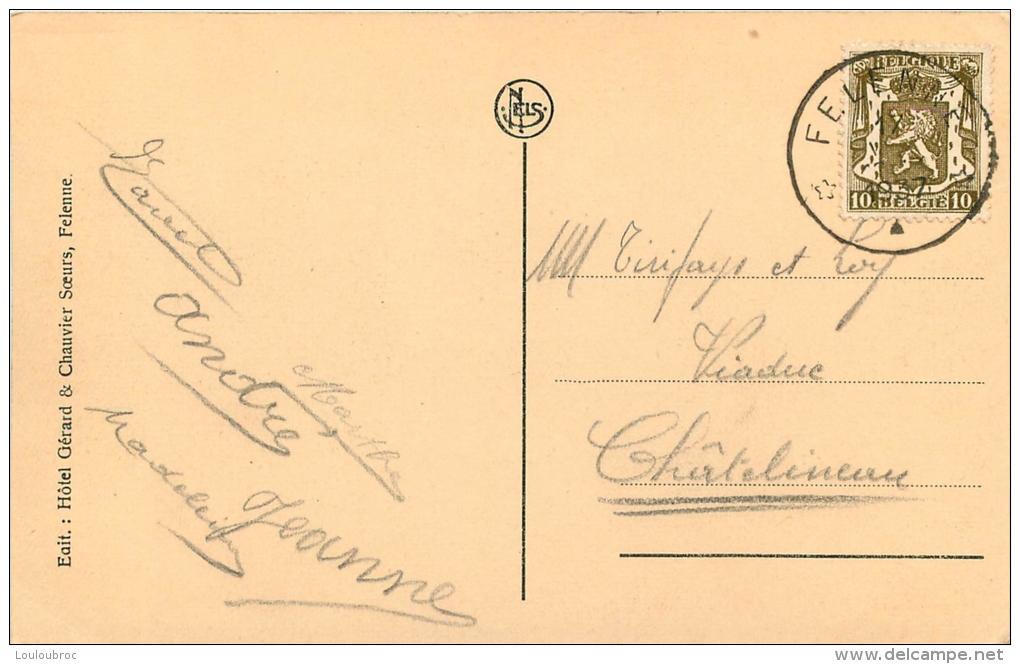 Edit. : Hôtel Gérard & Chauvier Sœurs, Felenne.
NELS
FELENNE
1937
BELGIQUE
10 BELGIË 10
André
Marthe
Madeleine
Jeanne
MM Tirifays et Loy
Viaduc
Châtelineau
Louloubroc
delcampe.net